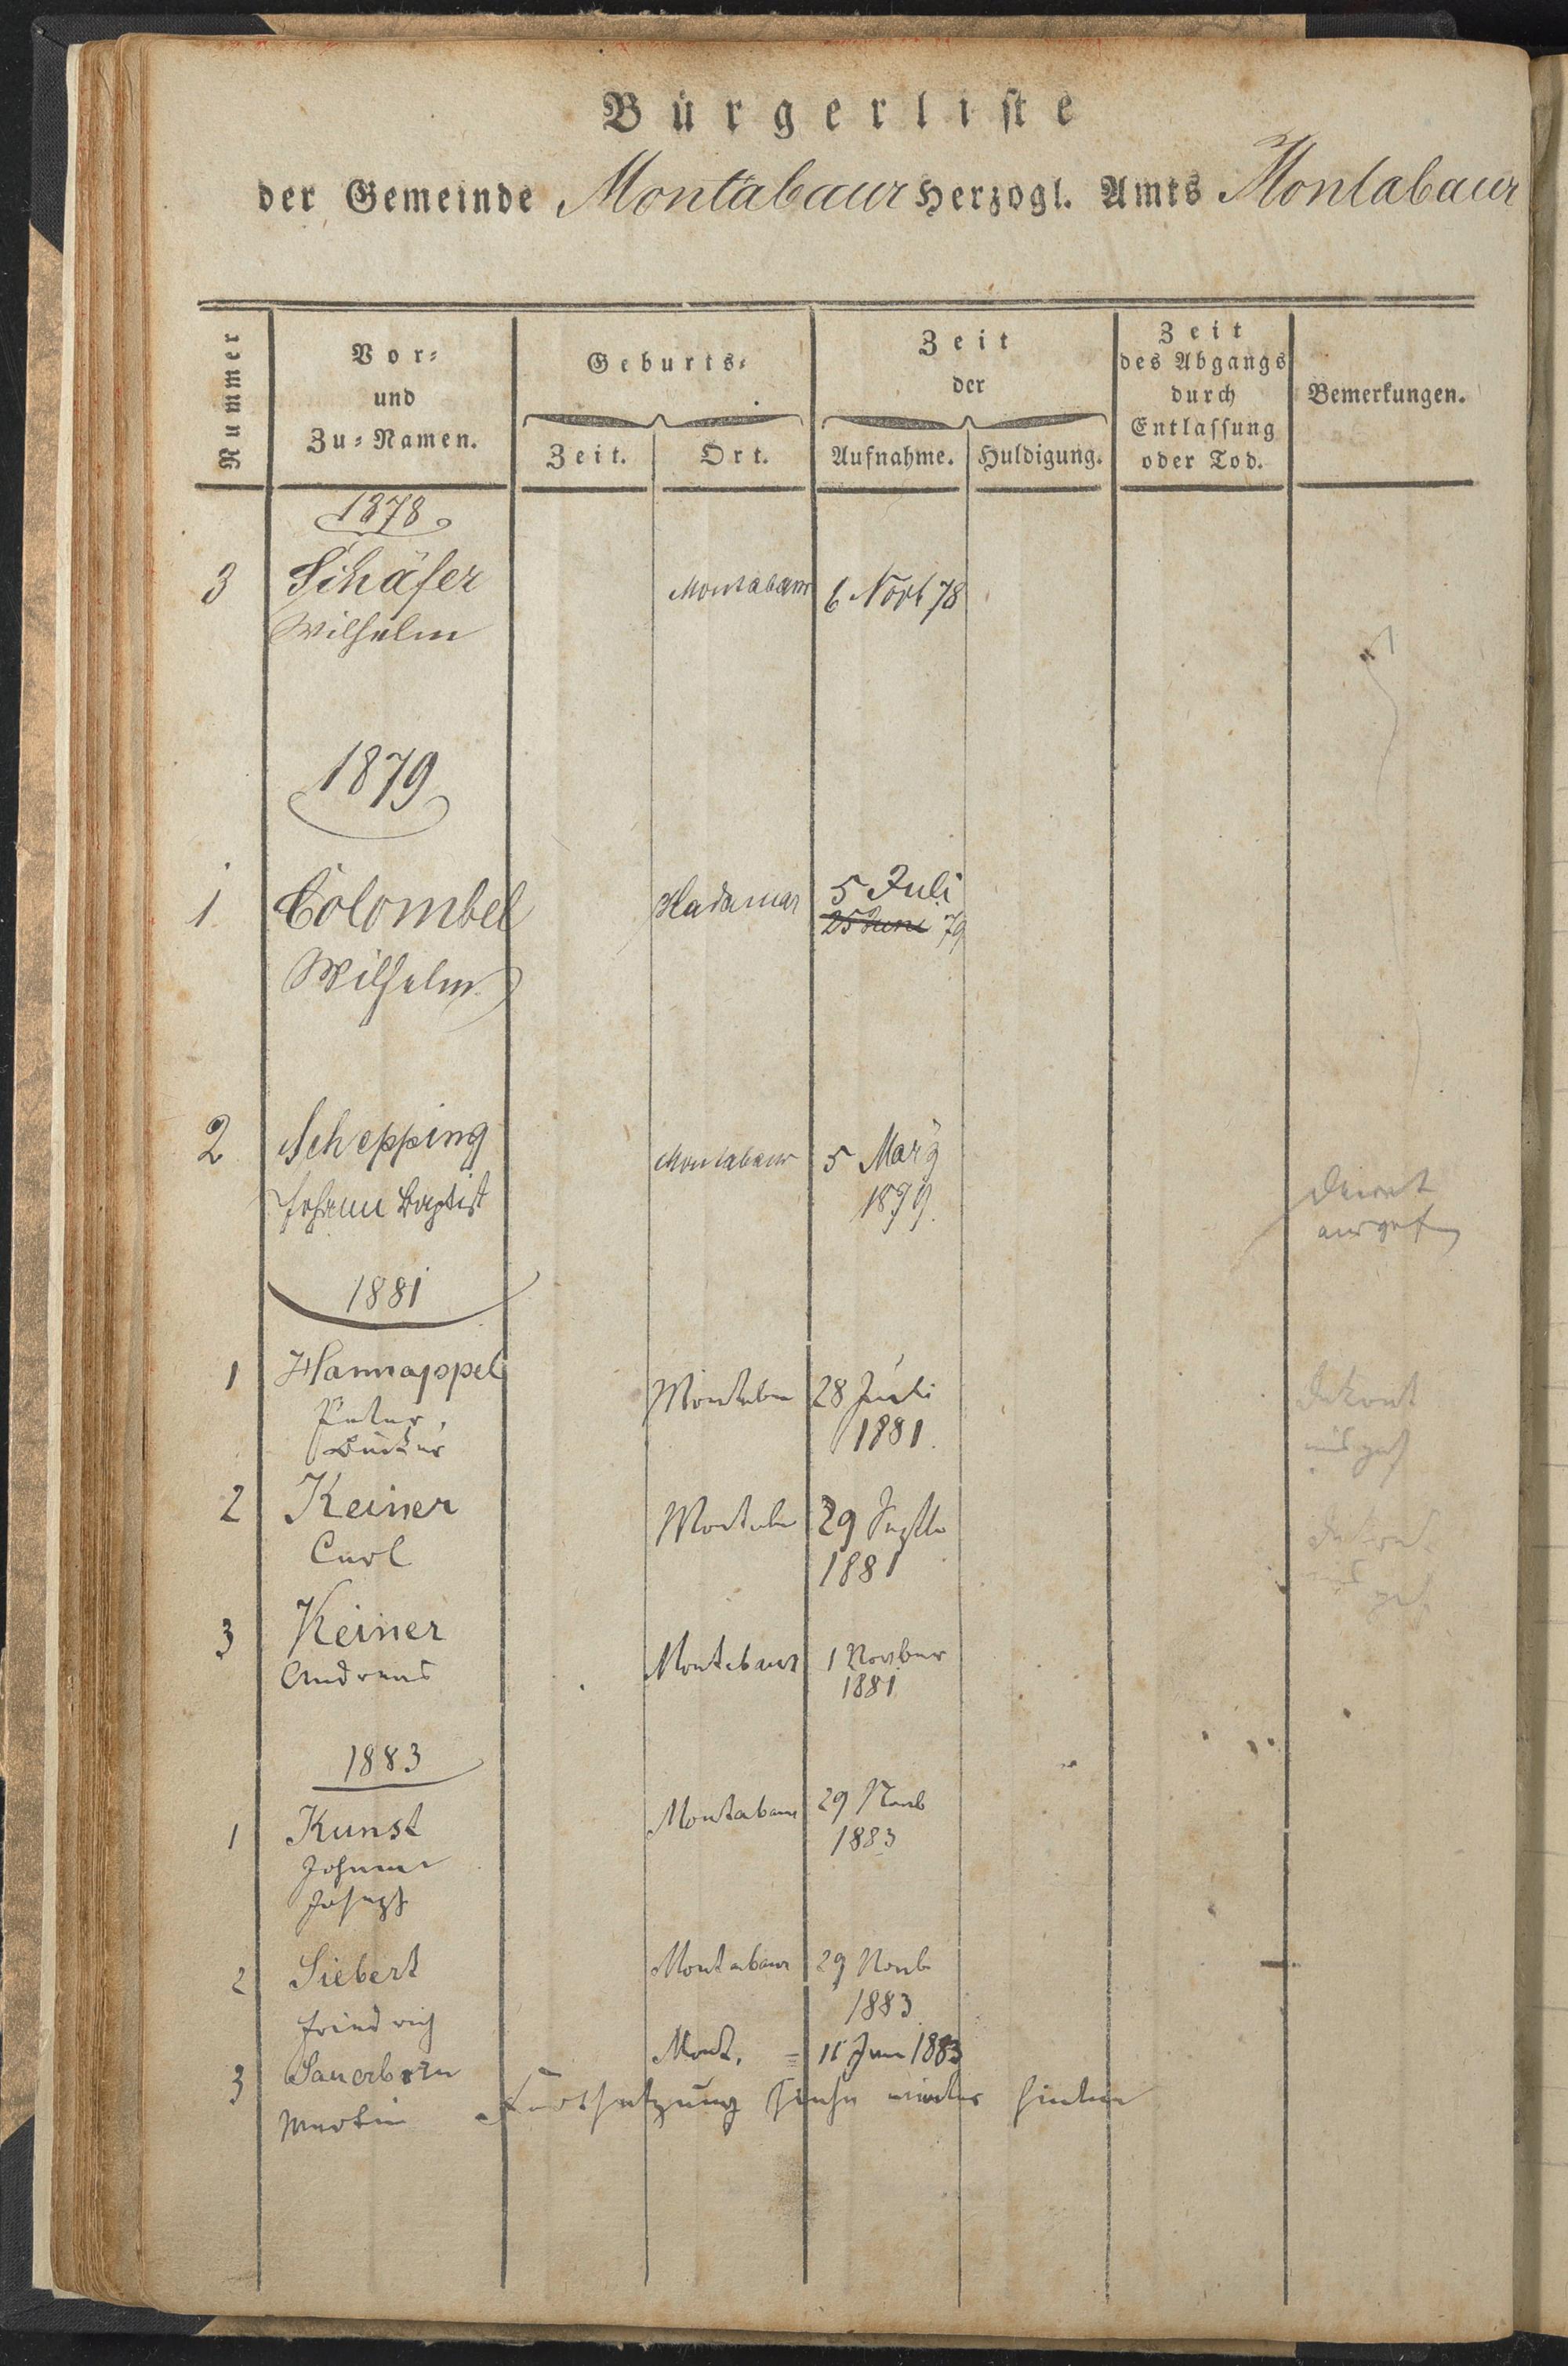 Bürgerliste
der Gemeinde Montabaur Herzogl. Amts Montabaur
Nummer
Vor-
und
Zu-Namen.
Geburts-
Zeit.
Ort.
Zeit
der
Aufnahme.
Huldigung.
Zeit
des Abgangs
durch
Entlassung
oder Tod.
Bemerkungen.
1878
3 Schäfer Montabaur 6 Novb 78
Wilhelm
1879
1 Colombel Hadamar 5 Juli
25 Juni 79
Wilhelm
2 Schepping Montabaur 5 März
Johann Baptist 1879.
Dekret
ausgef
1881
1 Hannappel Montabr 28 Juli
Peter, 1881.
Bäcker
Dekret
ausgef
2 Keiner Montabr 29 Septb
Carl 1881
Dekret
ausgef.
3 Keiner Montabaur 1 Novber
Andreas 1881
1883
1 Kunst Montabaur 29 Novb
Johann 1883
Joseph
2 Siebert Montabaur 29 Novb
1883
Friedrich
3 Sauerborn Mont. = 15 Jun 1883
Martin Fortsetzung siehe weiter hinten